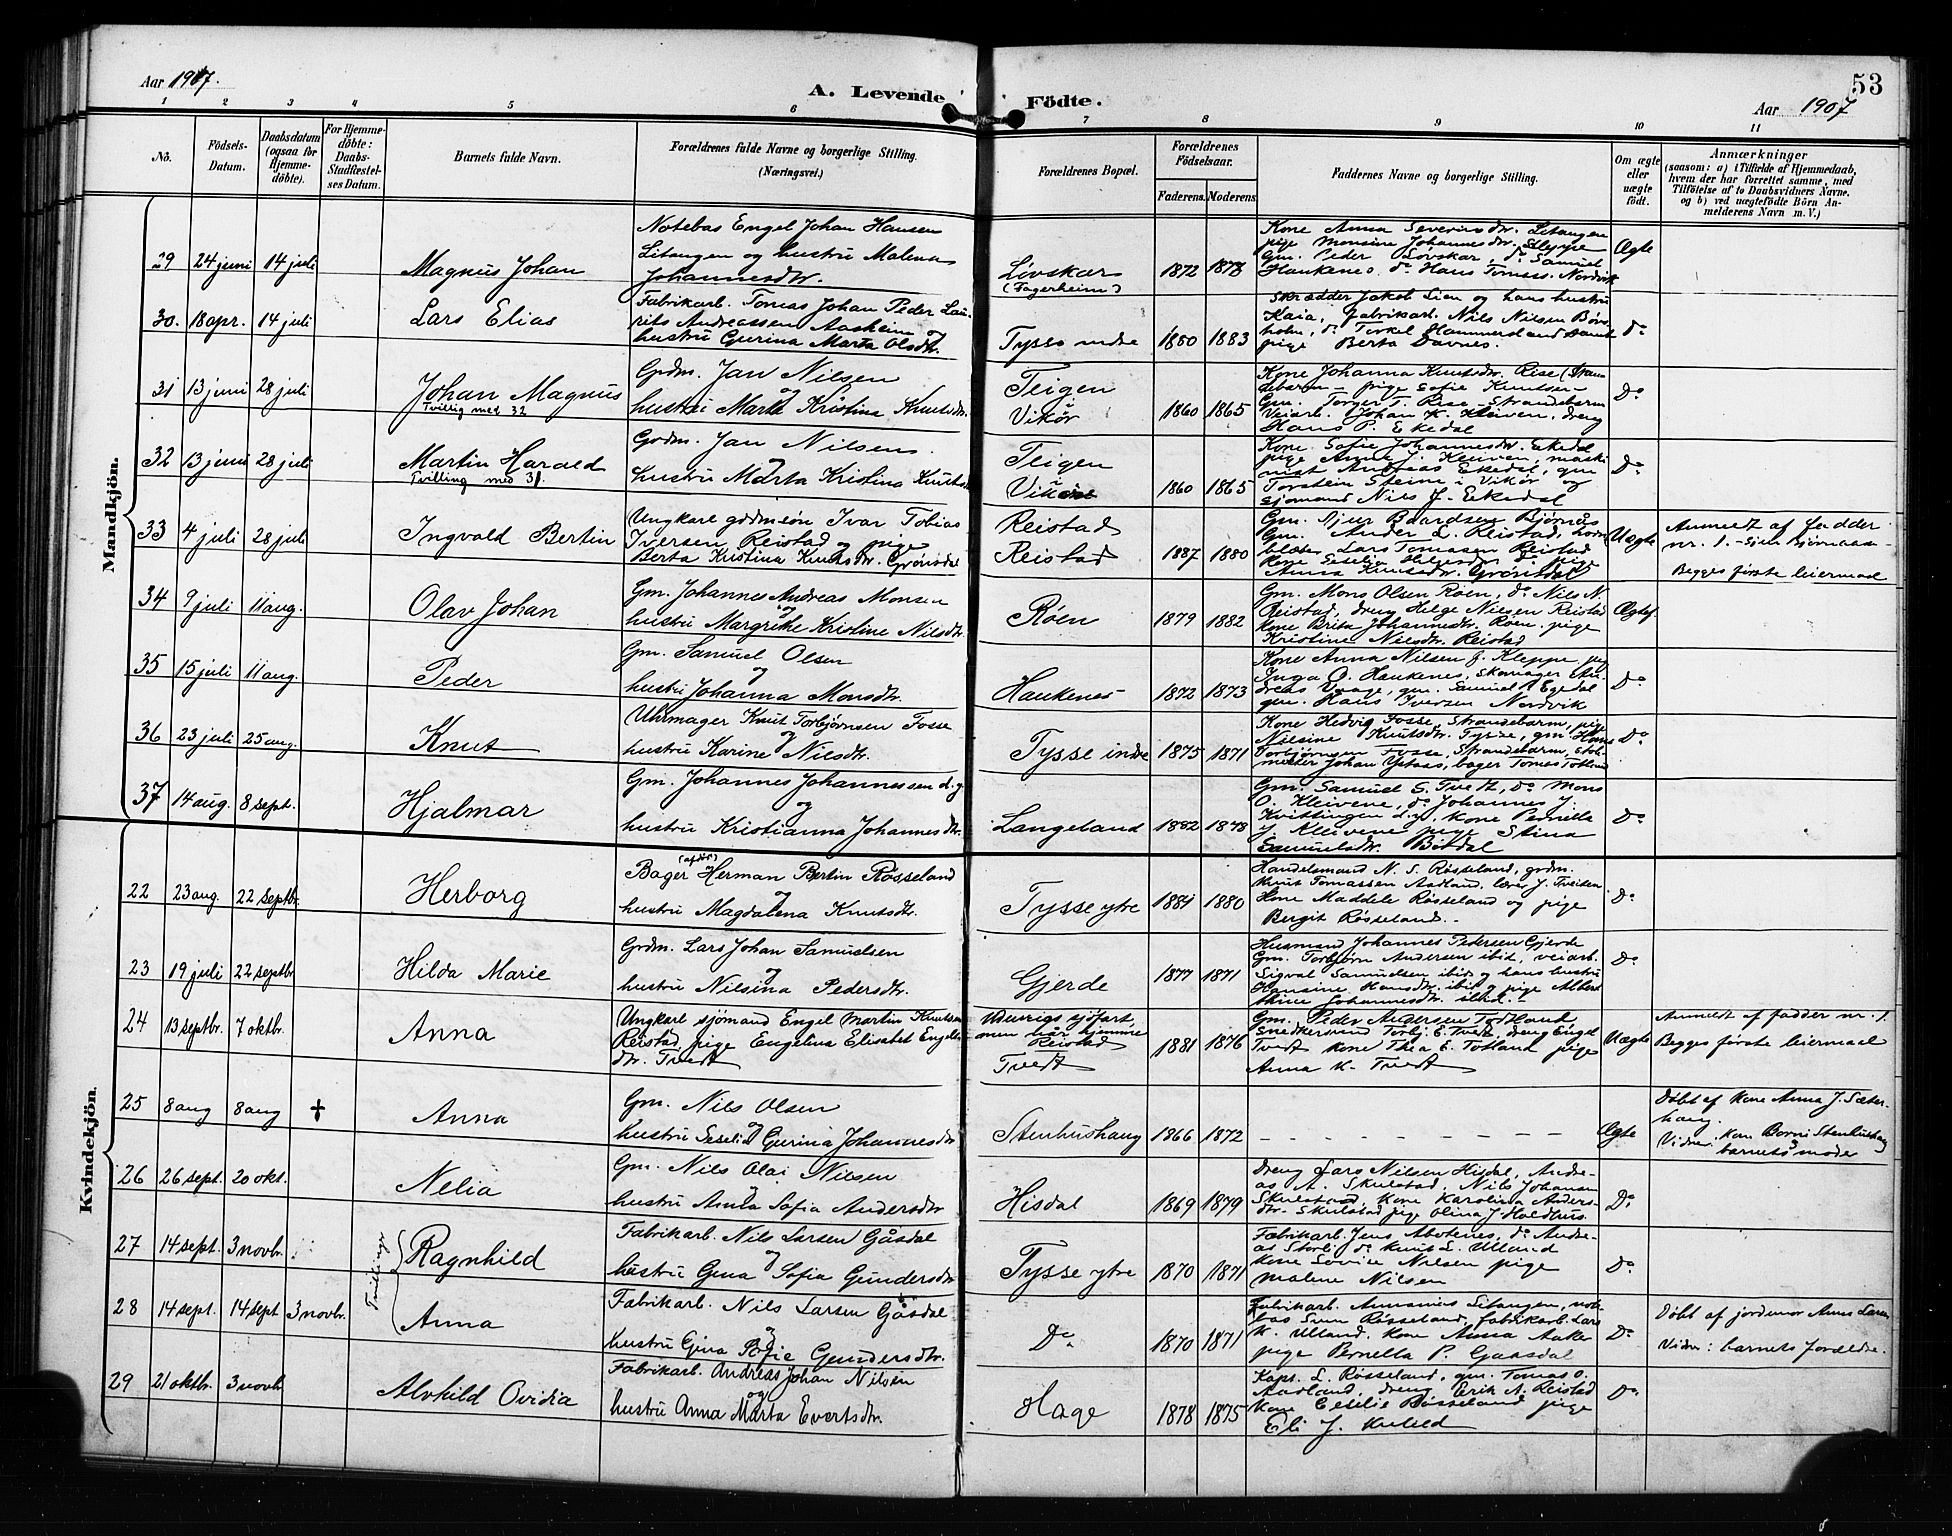 Aar 1907.
A. Levende Födte.
53
Aar 1907
1 2 3 4 5 6 7 8 9 10 11
No.
Födsels-
Datum.
Daabsdatum
(ogsaa for
Hjemme-
döbte).
For Hjemme-
döbte:
Daabs-
Stadfæstel-
ses Datum.
Barnets fulde Navn.
Forældrenes fulde Navne og borgerlige Stilling.
(Næringsvei.)
Forældrenes Bopæl.
Forældrenes
Födselsaar.
Faderens. Moderens.
Faddernes Navne og borgerlige Stilling.
Om ægte
eller
uægte
födt.
Anmærkninger
(saasom: a) i Tilfælde af Hjemmedaab,
hvem der har forrettet samme, med
Tilföielse af to Daabsvidners Navne.
og b) ved uægtefödte Börn An-
melderens Navn m. V.)
Mandkjön.
29 24 juni 14 juli
Magnus Johan
Notebas Engel Johan Hansen
Litangen og hustru Malena
Johannesdtr.
Lövskar
(Fagerheim)
1872 1878
Kone Anna Severinsdtr. Litangen
pige Monsine Johannesdtr. Kleppe
Gm. Peder Lövskar, do Samuel
Haukenes, do. Hans Tomass. Nordvik
Ægte
30. 18 apr. 14 juli
Lars Elias
Fabrikarb. Tomas Johan Peder Lau-
rits Andreassen Aasheim og
hustru Gurina Marta Olsdtr.
Tysse indre
1880 1883
Skrædder Jakob Lien og hans hustru
Kaia, fabrikarb. Nils Nilsen Börs-
holm, do Torkel Hammersland samt
pige Berta Davnes.
Do
31 13 juni 28 juli
Johan Magnus
Tvillig med 32
Grdm. Jan Nilsen
og
hustru Marta Kristina Knutsdtr.
Teigen
i
Vikör
1860 1865
Kone Johanna Knutsdtr. Rise (Stran-
debarm - pige Sofie Knutsen -
Gm. Torger T. Rise - Strandebarm
Veiarb. Johan K. Kleiven, dreng
Hans P. Ekedal
Do
32 13 juni 28 juli
Martin Harald
Tvilling med 31.
Grdm. Jan Nilsen.
og
hustru Marta Kristina Knutsd.
Teigen
i
Vikör
1860 1865
Kone Sofie Johannesdtr. Ekedal
pige Anna J. Kleiven, maski-
nist Andreas Ekedal, gm
Torstein Steine i Vikör og
sjömand Nils J. Ekedal
Do
33 4 juli 28 juli
Ingvald Bertin
Ungkarl gdmsön Ivar Tobias
Iversen Reistad og pige
Berta Kristina Knutsdtr. Grönsdal
Reistad
Reistad
1887 1880
Gm. Sjur Baardsen Björnås
Gm. Ander L. Reistad, horn-
blæser Lars Tomasen Reistad
Anna Knutsdtr. Grönsdal
Uægte
Anmeldt af fadder
nr. 1. - Sjur Björnaas
Begges första leiermaal
34 9 juli 11 aug.
Olav Johan
Gm. Johannes Andreas Monsen
og
hustru Margrethe Kristine Nilsdtr.
Röen
1879 1882
Gm. Mons Olsen Röen, do Nils N.
Reistad, dreng Helge Nilsen Reistad
kone Brita Johannesdtr. Röen, pige
Kristine Nilsdtr. Reistad
Ægtef.
35 15 juli 11 aug.
Peder
Gm. Samuel Olsen
og
hustru Johanna Monsdtr.
Haukenes
1872 1873
Kone Anna Nilsen f. Kleppe, pig
Inga O. Haukenes, skomager An-
dreas Vaage, gm. Samuel Egedal
gm. Hans Iversen Nordvik
Do
36 23 juli 25 aug.
Knut
Uhrmager Knut Torbjörnsen Fosse
og
hustru Karine Nilsdtr.
Tysse indre
1875 1871
Kone Hedvig Fosse, Strandebarm, pige
Nilsine Knutsdtr. Tysse, gm. Hans
Torbjörnsen Fosse, Strandebarm,
Johan Ystaas, bager Tomas Totland
Do
37 14 aug. 8 sept.
Hjalmar
Gm. Johannes Johannessen d. y.
og
hustru Kristianna Johannesdtr.
Langeland
1882 1878
Gm. Samuel S. Tvedt, do Mons
O. Kleivene, do Johannes J.
Kvitlingen d.y. kone Pernilla
J. Kleivene pige Stina
Samuelsdtr. Bördal
Do
Kvindekjön.
22 23 aug. 22 septbr.
Herborg
(afdöd)
Bager Herman Bertin Rösseland
og
hustru Magdalena Knutsdtr.
Tysse ytre
1881 1880
Handelsmand N. S. Rösseland, grdm.
Knut Tomassen Aadland, lærer J. Tveiten
Kone Maddele Rösseland og pige
Bergit Rösseland.
Do
23 19 juli 22 septbr
Hilda Marie
Grdm. Lars Johan Samuelsen
og
hustru Nilsina Pedersdtr.
Gjerde
1877 1871
Husmand Johannes Pedersen Gjerde
Gm. Torbjörn Andersen ibid, veiarb.
Sigval Samuelsen ibid og hans hustru
Hansine Hansdtr. ibid og pige Albert
thine Johannesdtr. ibid.
Do
24 13 septbr. 7 oktbr.
Anna
Ungkarl sjömand Engel Martin Knutsen
Reistad, pige Engelina Elisabet Engels-
dtr. Tvedt
Udenrigs sjöfart
men har hjemme
Reistad
Tvedt
1881 1876
Gm. Peder Andersen Totland
Snedkersvend Torbj. E. Tvedt, dreng Engel
Tvedt kone Thea E. Totland pige
Anna K. Tvedt
Uægte
Anmeldt af fadder nr. 1.
Begges förste leiermaal
25 8 aug 8 aug †
Anna
Gm. Nils Olsen
og
hustru Seselia Gurina Johannesdtr
Stenhushaug
1866 1872
- - - - - - - -
Ægte
Döbt af Kone Anna J. Sæter-
haug.
Vidner: Kone Borni Stenhushaug
barnets moder
26 26 sept. 20 okt.
Nelia
Gm. Nils Olai Nilsen
hustru Anna Sofia Andersdtr
Hisdal
1869 1879
Dreng Lars Nilsen Hisdal, Andre-
as A. Skulstad, Nils Johansen
Skulstad, kone Karolina Anders-
dtr. Skulstad pige Olina J. Holdhus.
Do
27 14 sept. 3 novbr.
Tvillinger
Ragnhild
Fabrikarb. Nils Larsen Gåsdal
og
hustru Gina Sofia Gundersdtr
Tysse ytre
1870 1871
Fabrikarb. Jens Abotenes, do Andre-
as Storli do Knut L. Ulland
kone Lovise Nilsen pige
Malene Nilsen
Do
28 14 sept. 14 sept 3 novbr.
Anna
Fabrikarb. Nils Larsen Gåsdal
og
hustru Gina Sofie Gundersdtr.
Do
1870 1871
Fabrikarb. Ananias Litangen, not-
bas Sven Rösseland, fabrikarb. Lars
K. Ulland, kone Anna Aake
pige Pernella P. Gaasdal
Do
Döbt af jordmor Anna Larsen
Vidner: barnets forældre.
29 21 oktbr. 3 novbr
Alvhild Ovidia
Fabrikarb. Andreas Johan Nilsen
og
hustru Anna Marta Evertsdtr.
Hage
1878 1875
Kapt. L. Rösseland, gm. Tomas O.
Aadland, dreng Erik A. Reistad
Kone Cecilie Rösseland pige
Eli J. Kulild
Do